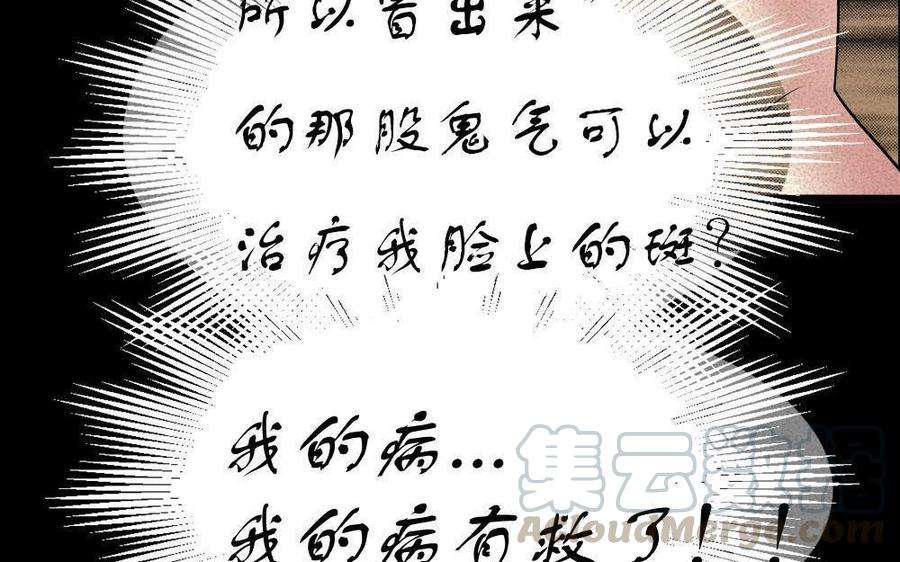 所以冒出来
的那股鬼气可以
治疗我脸上的斑?
我的病...
我的病有救了!!
集云数据
AcloudMerge.com